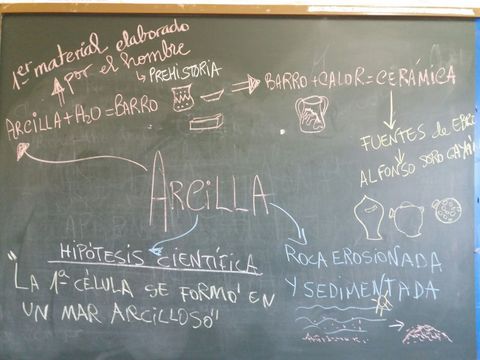 1er material elaborado
por el hombre
↳ PREHISTORIA
ARCILLA + H2O = BARRO
BARRO + CALOR = CERÁMICA
FUENTES de
ALFONSO
ARCILLA
HIPÓTESIS CIENTÍFICA
"LA 1ª CÉLULA SE FORMÓ EN
UN MAR ARCILLOSO"
ROCA EROSIONADA
Y SEDIMENTADA